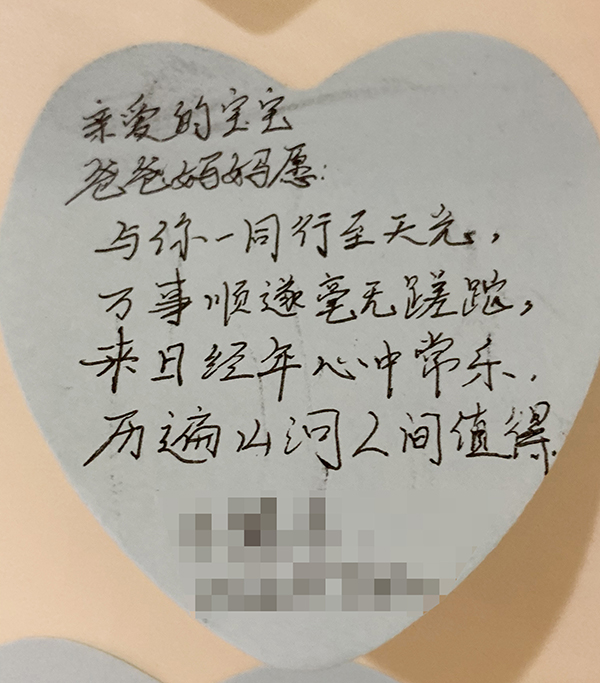 亲爱的宝宝
爸爸妈妈愿:
与你一同行至天光,
万事顺遂毫无蹉跎,
来日经年心中常乐.
历遍山河人间值得